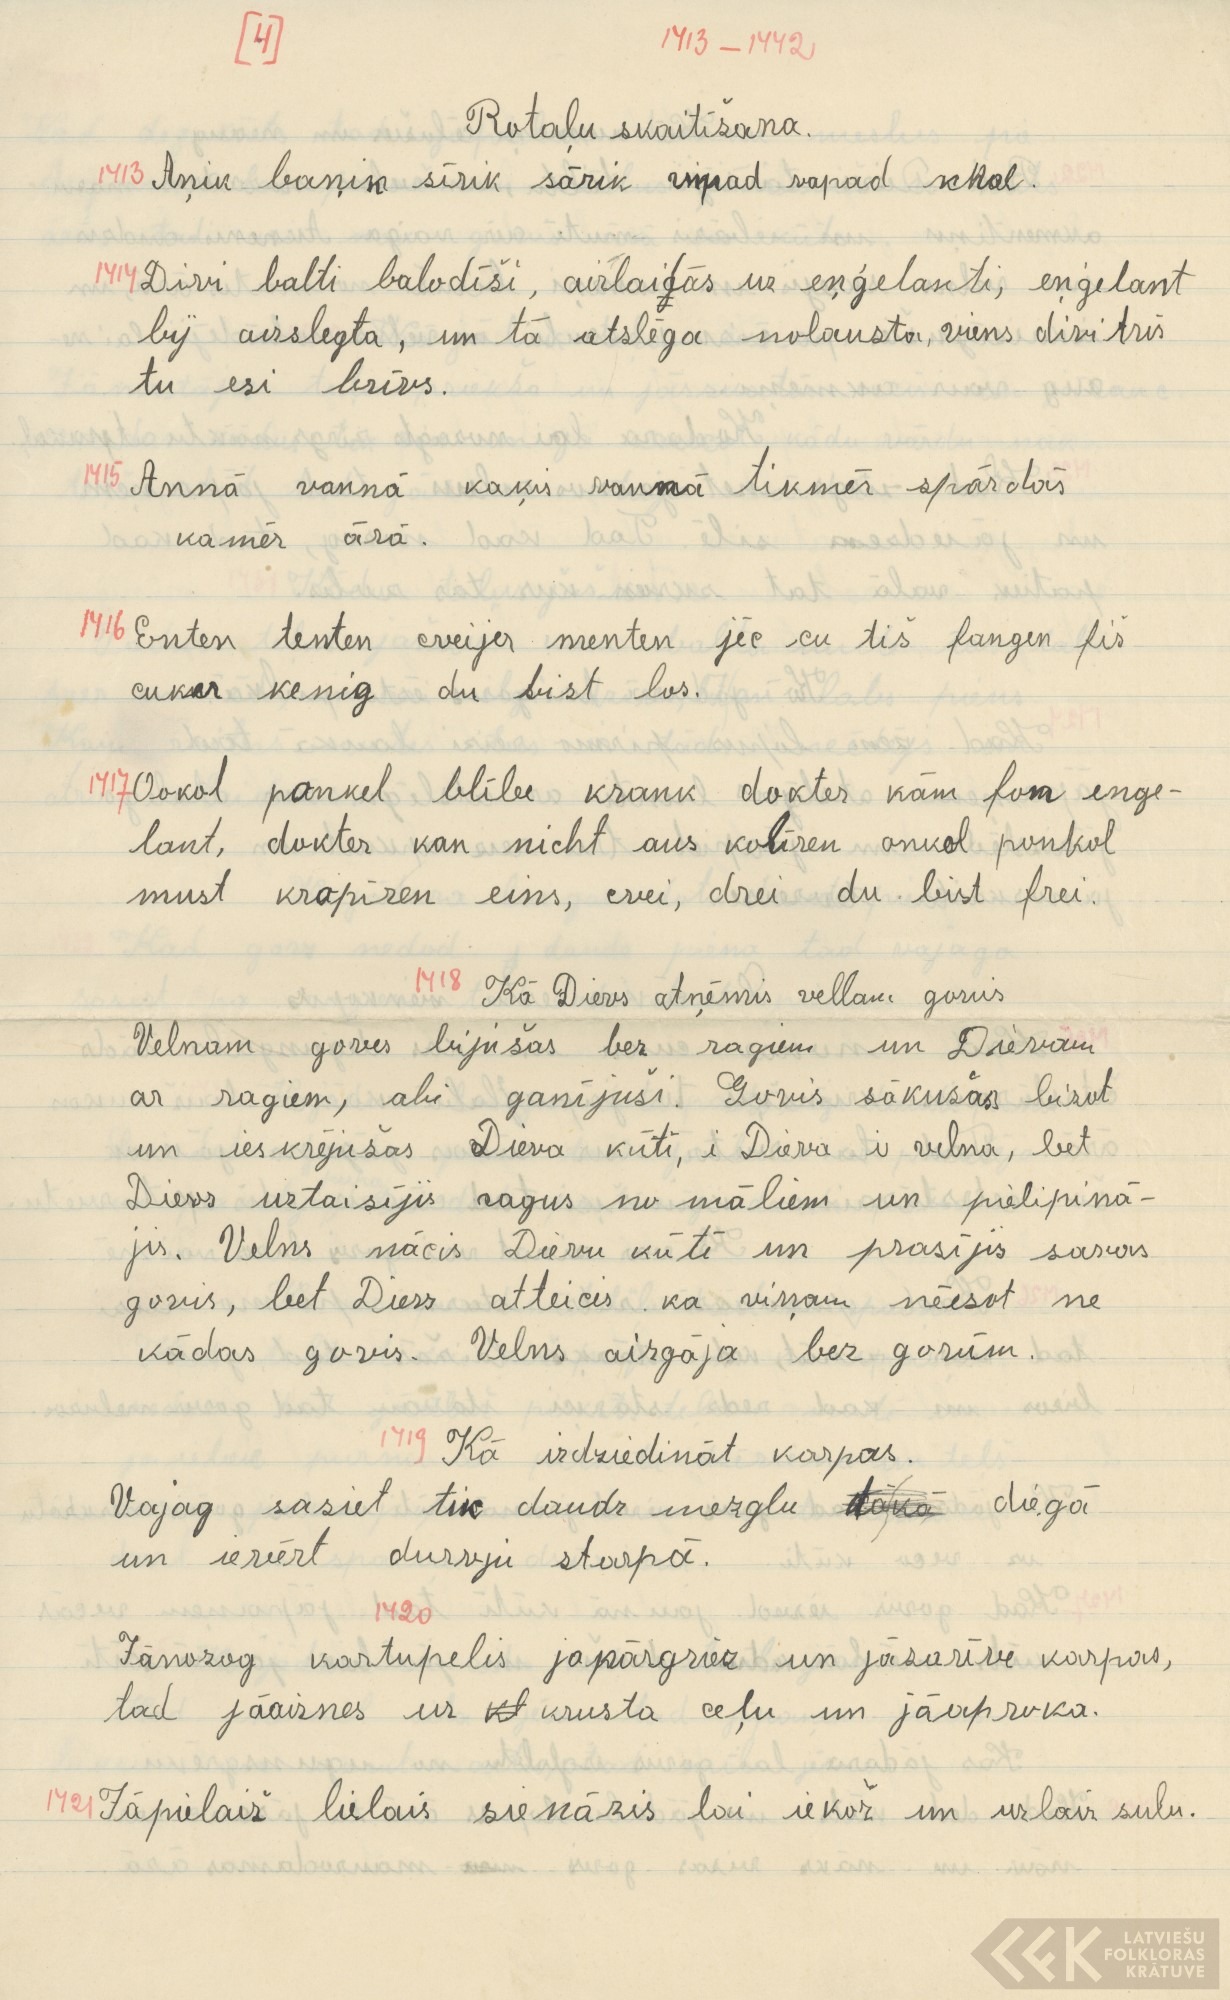 [4] 1413 – 1442
Rotaļu skaitīšana.
1413 Aņik baņik sīrik sārik vipad vapad nkol.
1414 Divi balti balodīši, aizlaidās uz eņģelanti, eņģelant
bij aizslegta, un tā atslēga nolausta, viens divi trīs
tu esi brīvs.
1415 Annā vannā kaķis vannā tikmēr spārdās
kamēr ārā.
1416 Enten tenten cveijer menten jēc cu tiš fangen fiš
cuker kenig du bist los.
1417 Ookol pankel blībe krank dokter kām fom enge-
lant, dokter kan nicht aus kolīren onkol ponkol
must krapīren eins, cvei, drei du bist frei.
1418 Kā Dievs atņēmis vellam govis
Velnam goves bijušas bez ragiem un Dievam
ar ragiem, abi ganījuši. Govis sākušas bizot
un ieskrējušas Dieva kūtī, i Dieva i velna, bet
Dievs uztaisījis ragus no māliem un pielipinā-
jis. Velns nācis Dievu kūtī un prasījis savas
govis, bet Dievs atteicis ka viņam nēesot ne
kādas govis. Velns aizgāja bez govīm.
1419 Kā izdziedināt karpas.
Vajag sasiet tik daudz mezglu diegā
un ievērt durvju starpā.
1420
Jānozog kartupelis japārgriež un jāzarīve karpas,
tad jāaiznes uz krusta ceļu un jāaproka.
1421 Jāpielaiž lielais sienāzis lai iekož un uzlaiž sulu.
LATVIEŠU
FOLKLORAS
KRĀTUVE